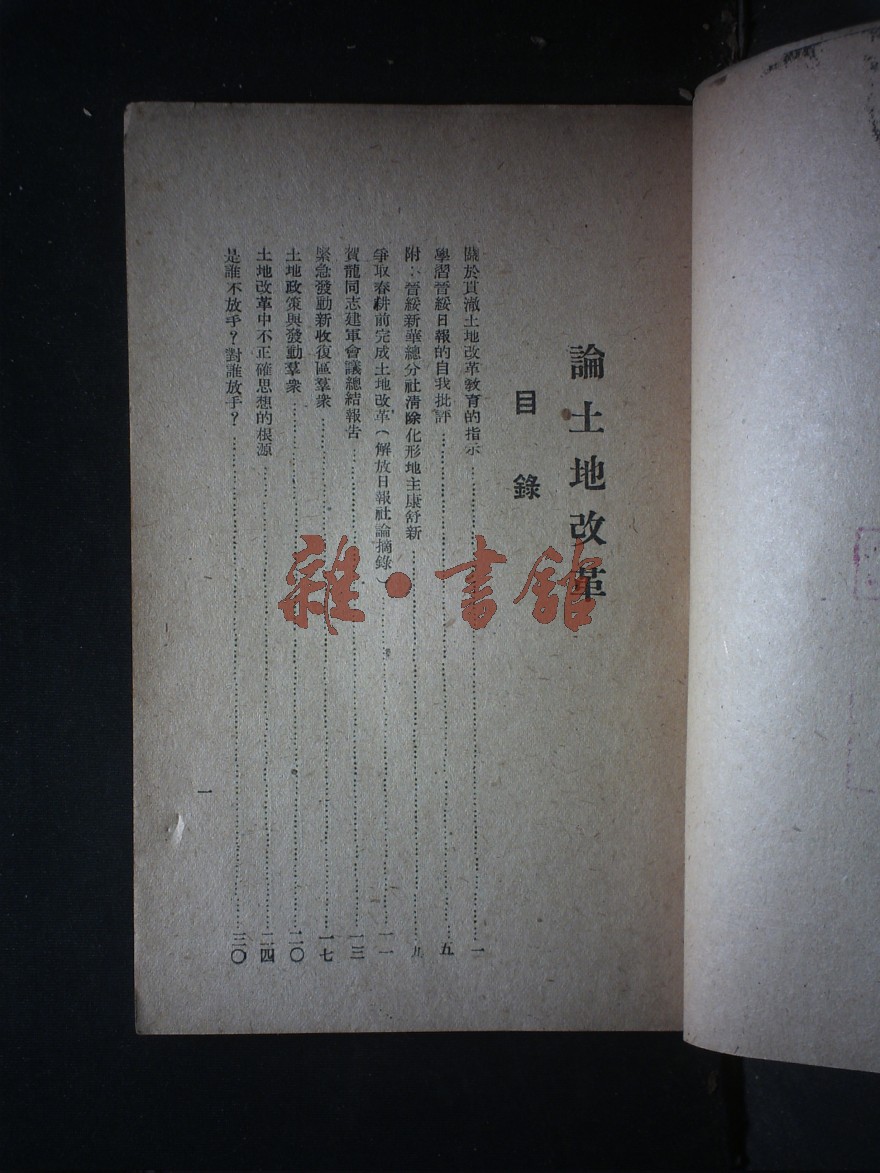 論土地改革
目錄
關於貫澈土地改革教育的指示……一
學習晉綏日報的自我批評……五
附：晉綏新華總分社清除化形地主康舒新……九
爭取春耕前完成土地改革（解放日報社論摘錄）……一一
賀龍同志建軍會議總結報告……一三
緊急發動新收復區羣衆……一七
土地政策與發動羣衆……二〇
土地改革中不正確思想的根源……二四
是誰不放手？對誰放手？……三〇
一
雜·書館